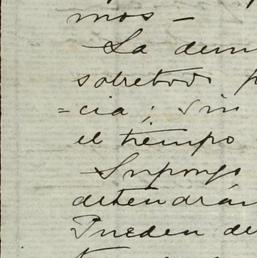 mos –
La dem
sobretodo p
=cia; sin
el tiempo
Supongo
detendrán
Pueden de